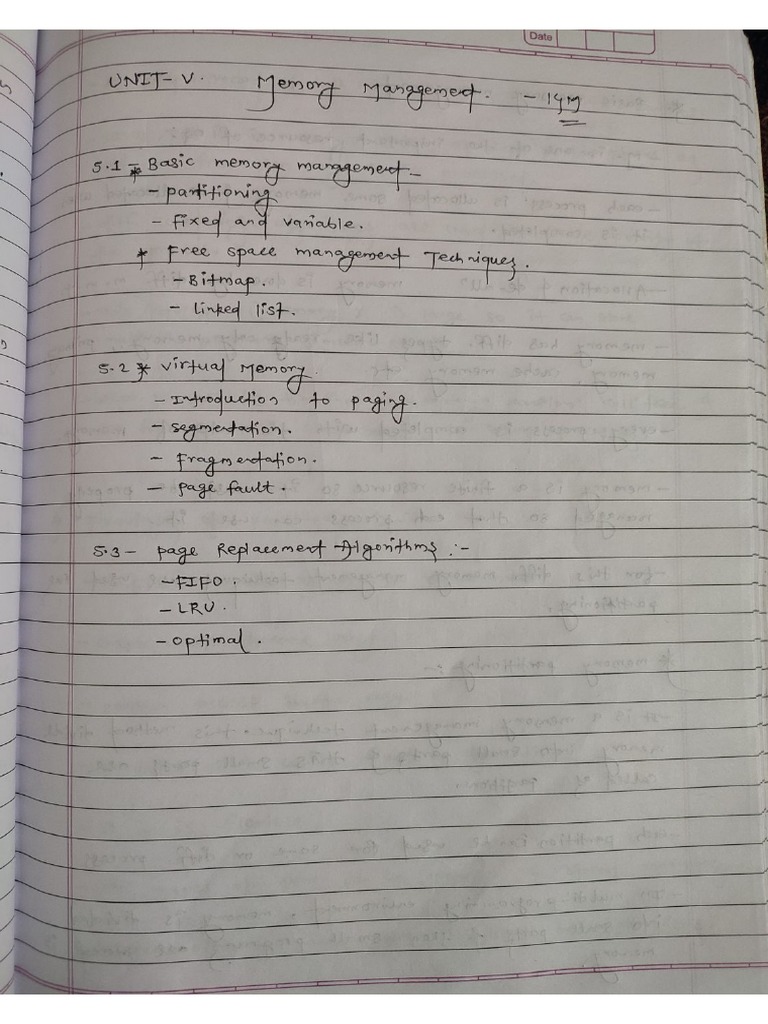 Date
UNIT-V. Memory Management. - 14M
5.1 - * Basic memory management -
- partitioning
- fixed and variable.
* Free space management Techniques.
- Bitmap.
- linked list.
5.2 * Virtual Memory.
- Introduction to paging.
- segmentation.
- Fragmentation.
- page fault.
5.3 - page Replacement Algorithms :-
- FIFO.
- LRU.
- optimal.